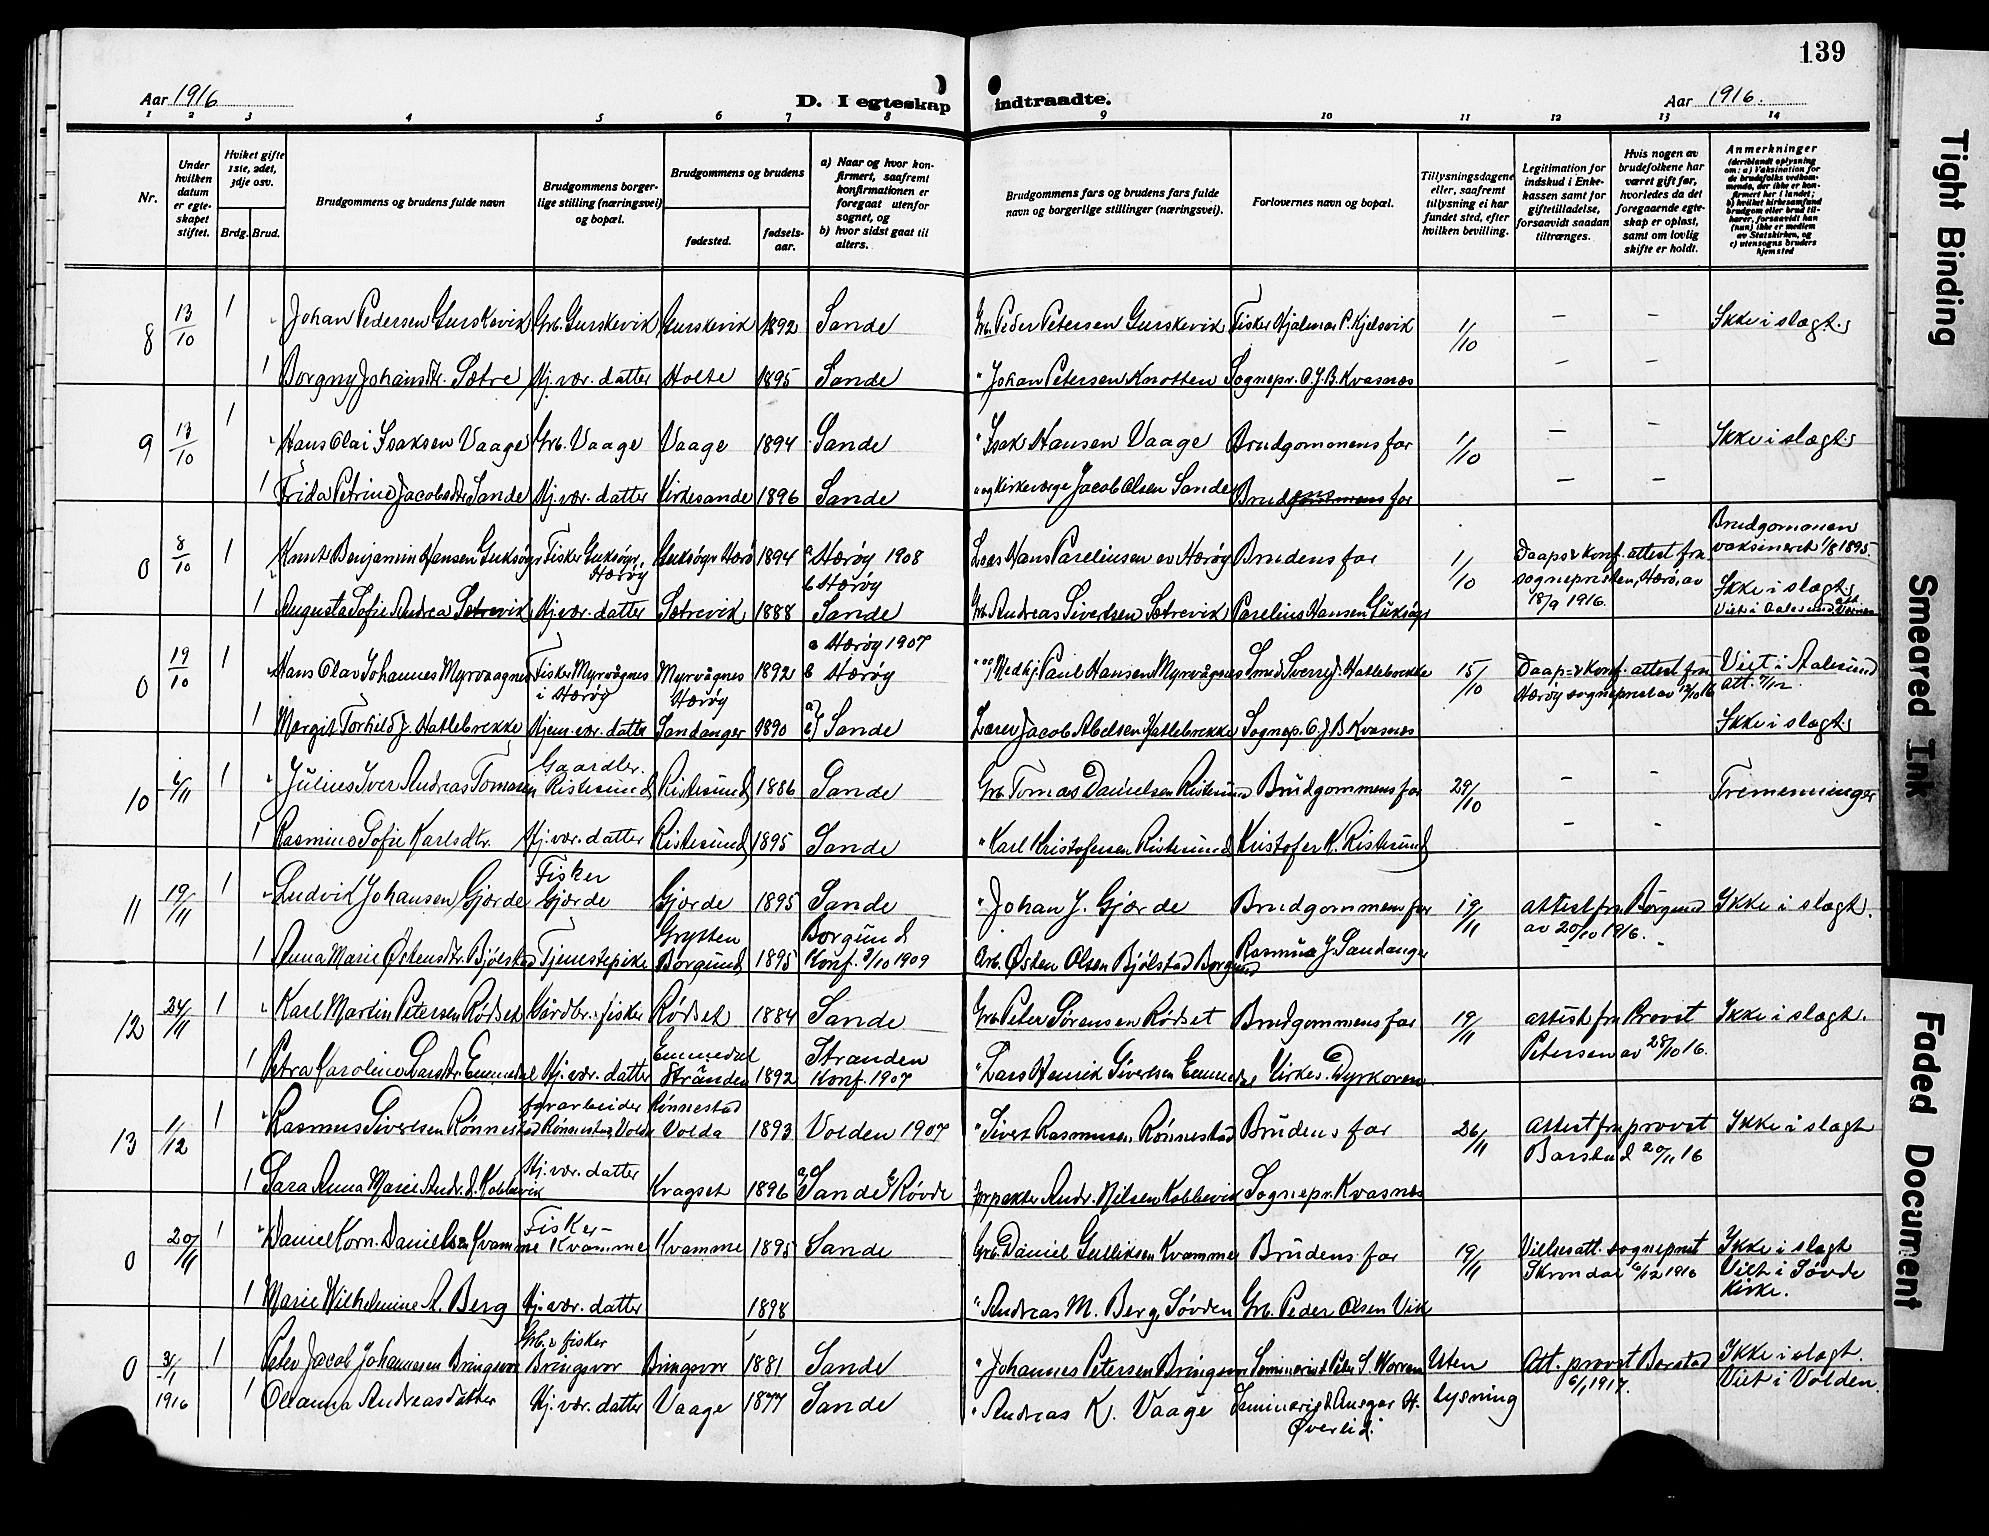 139
Aar 1916
D. I egteskap indtraadte.
Aar 1916.
1 2 3 4 5 6 7 8 9 10 11 12 13 14
Nr.
Under hvilken datum er egteskapet stiftet.
Hviket gifte 1ste, 2det, 3dje osv.
Brdg. Brud.
Brudgommens og brudens fulde navn
Brudgommens borgerlige stilling (næringsvei) og bopæl.
Brudgommens og brudens
fødested.
fødselsaar.
a) Naar og hvor konfirmert, saafremt konfirmationen er foregaat utenfor sognet, og
b) hvor sidst gaat til alters.
Brudgommens fars og brudens fars fulde navn og borgerlige stillinger (næringsvei).
Forlovernes navn og bopæl.
Tillysningsdagene eller, saafremt tillysning ei har fundet sted, efter hvilken bevilling.
Legitimation for indskud i Enkekassen samt for giftetilladelse, forsaavidt saadan tiltrænges.
Hvis nogen av brudefolkene har været gift før, hvorledes da det foregaaende egteskap er opløst, samt om lovlig skifte er holdt.
Anmerkninger
(deriblandt oplysning om: a) Vaksination for de brudefolks vedkommende, der ikke er konfirmert her i landet; b) hvilket kirkesamfund brudgom eller brud tilhører, forsaavidt han (hun) ikke er medlem av Statskirken, og c) utensogns bruders hjemsted
8 13/10 1 " Johan Pedersen Gurskevik Grb. Gurskevik Gurskevik 1892 Sande Grb. Peder Petersen Gurskevik Fisker Hjalmar P. Kjelsvik 1/10 – – Ikke i slægt.
1 Borgny Johansdtr. Sætre Hj. vær. datter Holte 1895 Sande " Johan Petersen Knotten Sognepr. O.J.B. Kvasnes – –
9 13/10 1 " Hans Olai Isaksen Vaage Grb. Vaage Vaage 1894 Sande " Isak Hansen Vaage Brudgommens far 1/10 – – Ikke i slægt.
1 Frida Petrine Jacobsdtr Sande Hj. vær. datter Kirkesande 1896 Sande " og Kirkeværge Jacob Olsen Sande Brudens far – –
0 8/10 1 Knut Benjamin Hansen Fisker Herøy 1894 a Herøy 1908 b Herøy Brudens far 1/10 Daaps & konf. attest fra sognepresten, Herø, av 18/9 1916. Brudgommen vaksineret 1/8 1895. Ikke i slægt
1 Augusta Sofie Andrea Sætrevik Hj. vær. datter Sætrevik 1888 Sande Grb. Andreas Sivertsen Sætrevik Parelius Hansen
0 19/10 1 " Hans Olav Johannes Myrvaagnes Fisker Myrvågnes i Herøy Myrvågnes Herøy 1892 a Herøy 1907 b Herøy Paul Hansen Myrvågnes Smed Hatlebrekke 15/10 Daap- & konf. attest fra Herøy sogneprest av Viet i Aalesund
1 Margit Torhild J. Hatlebrekke Hjem. vær. datter Sandanger 1890 a) b) Sande Lærer Jacob Abelsen Hatlebrekke Sognep. O.J.B Kvasnes Ikke i slægt
10 6/11 1 " Julius Iver Andreas Tomasen Gaardbr. Ristesund Ristesund 1886 Sande Grb. Tomas Danielsen Ristesund Brudgommens far 29/10 – – Tremenninger
1 Rasmine Sofie Karlsdtr. Hj. vær. datter Ristesund 1895 Sande " Karl Kristofersen Ristesund Kristofer K. Ristesund – –
11 19/11 1 " Ludvik Johansen Gjørde Fisker Gjørde Gjørde 1895 Sande " Johan J. Gjørde Brudgommens far 19/11 attest fra Borgund av 20/10 1916. Ikke i slægt.
1 Anna Marie Østensdtr. Bjølstad Tjenestepike Grytten Borgund 1895 Borgund Konf. 3/10 1909 Grb. Østen Olsen Bjølstad Borgund Rasmus J. Sandanger
12 24/11 1 " Karl Martin Petersen Rødset Gårdbr. & fisker Rødset 1884 Sande Grb. Peter Sørensen Rødset Brudgommens far 19/11 attest fra Provst Petersen av 28/10 16. Ikke i slægt.
1 Petra Karoline Larsdtr. Emmedal Hj. vær. datter Emmedal Stranden 1892 Stranden Konf. 1907 " Lars Henrik Sivertsen Emmedal Kirkes. Dyrkoren
13 1/12 1 " Rasmus Sivertsen Rønnestad forarbeider Rønnestad, Volda Rønnestad Volda 1893 Volden 1907 " Sivert Rasmusen Rønnestad Brudens far 26/11 Attest fra provst Barstad 20/11 16 Ikke i slægt
1 Sara Anna Marie Andr.d. Koblevik Hj. vær. datter Kragset 1896 a) Sande b) Røvde Forpakter Andr. Nilsen Koblevik Sognepr. Kvasnes
0 20/11 1 " Daniel Korn. Danielsen Kvamme Fisker – Kvamme Kvamme 1895 Sande Grb. Daniel Gulliksen Kvamme Brudens far 19/11 Vielsesatt. sogneprest Skrondal 6/12 1916 Ikke i slægt Viet i Søvde Kirke.
1 Marie Wilhelmine A. Berg Hj. vær. datter 1898 " Andreas M. Berg, Søvden Grb. Peder Olsen Vik
0 3/1 1916 1 Peter Jacob Johannesen Bringsvor Grb. & fisker Bringsvor Bringsvor 1881 Sande " Johannes Petersen Bringsvor Seminarist Peter S. Worren Uten lysning Att. provst Barstad 6/1 1917. Ikke i slægt. Viet i Volden.
1 Oleanna Andreasdatter Hj. vær. datter Vaage 1877 Sande " Andreas K. Vaage Seminarist Ansgar H. Øverlid.
Tight Binding
Smeared Ink
Faded Document